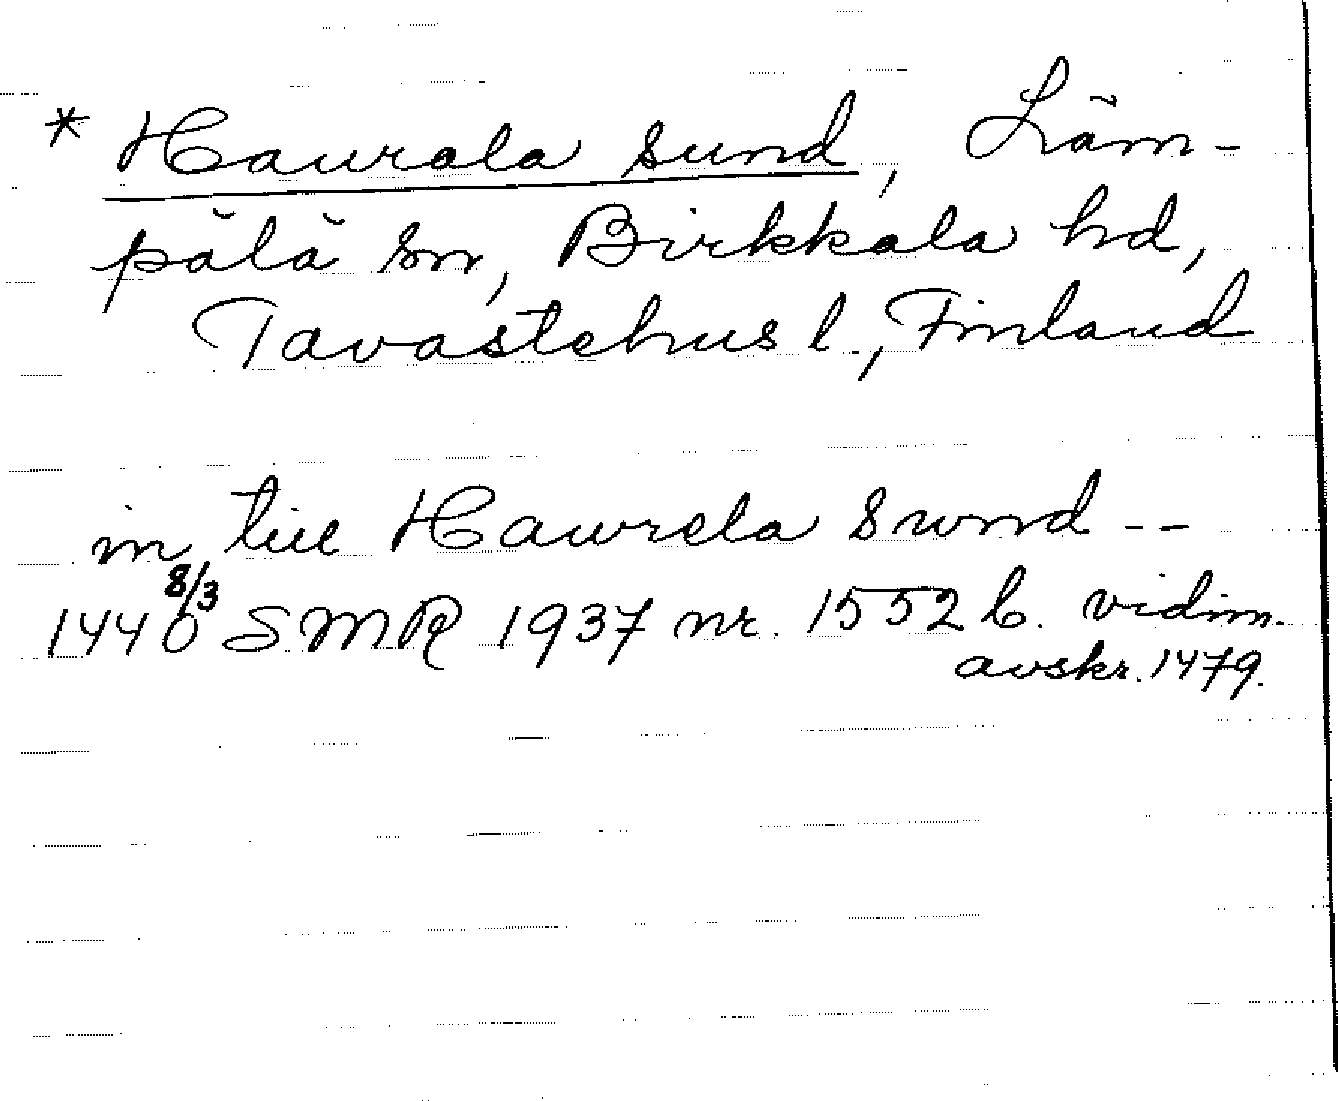 * Haurala sund, Läm-
pälä sn, Birkkala hd,
Tavastehus l., Finland
in till Hawrela swnd --
1440 8/3 SMR 1937 nr. 1552 b. vidim.
avskr. 1479.